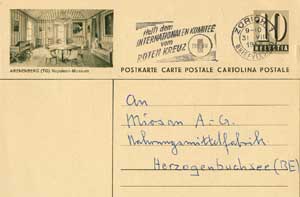 Helft dem
INTERNATIONALEN KOMITEE
vom
ROTEN KREUZ
ZÜRICH
9-0
31 VIII
10
HELVETIA
ARENENBERG (TG) Napoleon-Museum
POSTKARTE CARTE POSTALE CARTOLINA POSTALE
An
Miosan A.-G.
Nahrungsmittelfabrik
Herzogenbuchsee (BE)